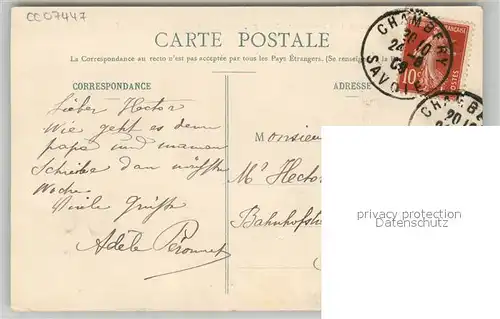 CC07447
CARTE POSTALE
La Correspondance au recto n'est pas acceptée par tous les Pays Étrangers. (Se renseigner à la
CORRESPONDANCE
ADRESSE
CHAMBERY
20 10
24
SAVOIE
10
FRANÇAISE
POSTES
CHAMBE
Lieber Hector
Wie geht es dem
papa und maman
Schreibe dan nächste
Woche
Viele Grüsse
Adèle Péronnet
Monsieur
Mr Hector
Bahnhofst
privacy protection
Datenschutz